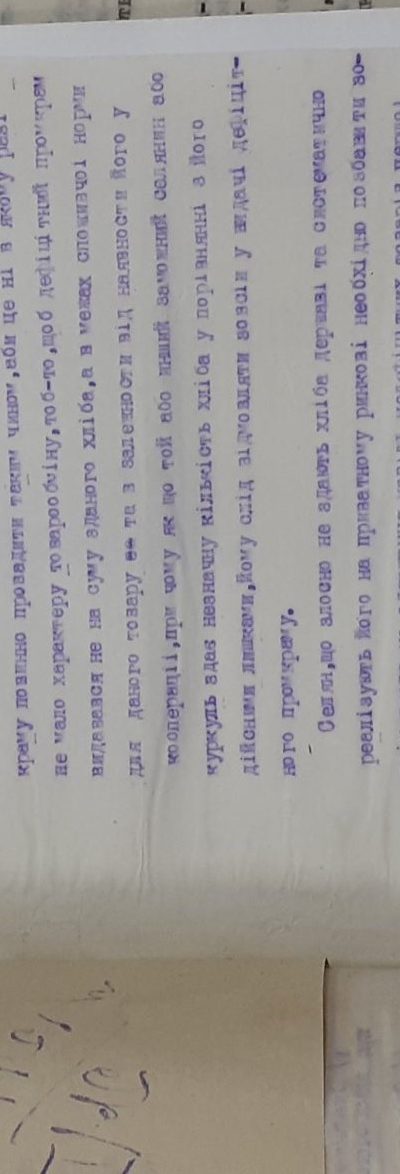 краму повинно провадити таким чином,аби це ні в якому разі
не мало характеру товарообміну,тоб-то,щоб дефіцитний промкрам
видавався не на суму зданого хліба,а в межах споживчої норми
для даного товару та в залежности від наявности його у
кооперації,при чому як що той або інший заможний селянин або
куркуль здає незначну кількість хліба у порівнянні з його
дійсними лишками,йому слід відмовляти зовсім у видачі дефіцит-
ного промкраму.
Селян,що злосно не здають хліба державі та систематично
реалізують його на приватному ринкові необхідно позбавити зо-